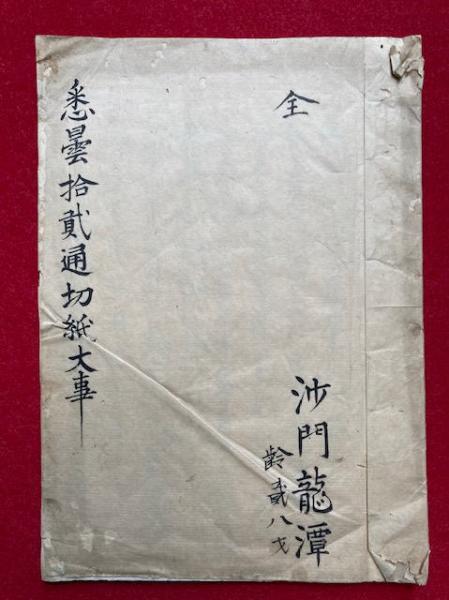 全
悉曇拾貳通切紙大事
沙門龍潭
齡貳八才